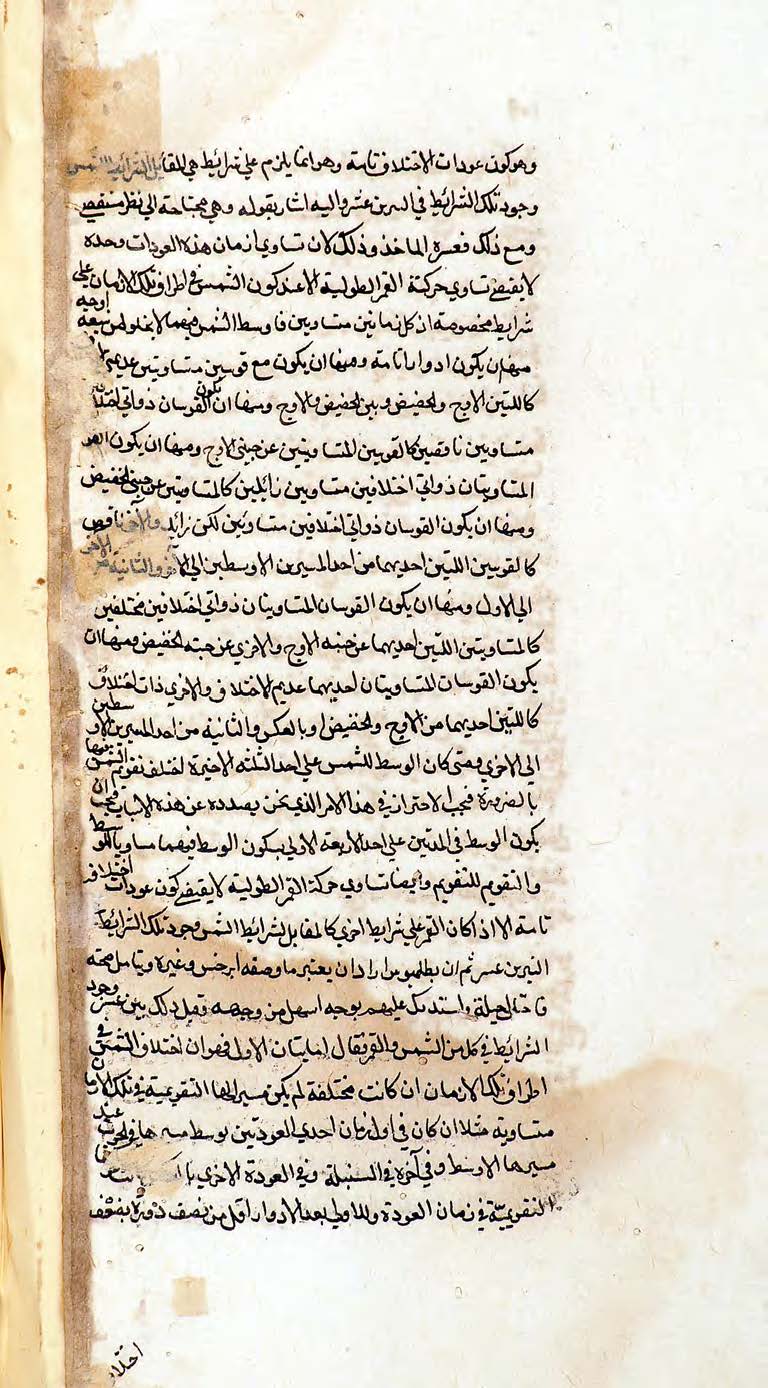 وهو كون عودات الاختلاف تامة وهو انما يلزم على شرائط هي المقابل لشرائط الشمس
وجود تلك الشرائط في النيرين عسر واليه اشار بقوله وهي محتاجة الى نظر مستقصى
ومع ذلك فعسرة الماخذ وذلك لان تساوي ازمان هذه العودات وحده
لا يقتضي تساوي حركة القمر الطولية الا عند كون الشمس في اطراف تلك الازمان على
شرايط مخصوصة اذ كل زمانين متساويين فاوسط الشمس فيهما لا يخلو من سبعة اوجه
منها ان يكون ادوارا تامة ومنها ان يكون مع قوسين متساويتين عديمتي
كاللتين الاوج والحضيض وبين الحضيض والاوج ومنها ان يكون القوسان ذواتي اختلافين
متساويين ناقصين كالقوسين المتساويتين عن جنبي الاوج ومنها ان يكون
المتساويتان ذواتي اختلافين متساويين زائدين كالمتساويتين عن جنبي الحضيض
ومنها ان يكون القوسان ذواتي اختلافين متساويين لكن زائد والآخر ناقص
كالقوسين اللتين احديهما من احد المسيرين الاوسطين الى الآخر والثانية من الآخر
الى الاول ومنها ان يكون القوسان المتساويتان ذواتي اختلافين مختلفين
كالمتساويتين اللتين احديهما عن جنبة الاوج والاخرى عن جنبة الحضيض ومنها ان
يكون القوسان المتساويتان احديهما عديم الاختلاف والاخرى ذات اختلاف
كاللتين احديهما من الاوج والحضيض او بالعكس والثانية من احد المسيرين الاوسطين
الى الاخرى ومتى كان الوسط للشمس على احد الثلثة الاخيرة اختلف تقويم الشمس فيها
بالضرورة فيجب الاحتراز في هذا الامر الذي نحن بصدده عن هذه الاسباب فيجب ان
يكون الوسط في المدتين على احد الاربعة الاولى ليكون الوسط فيهما مساويا للوسط
والتقويم للتقويم وايضا تساوي حركة القمر الطولية لا يقتضي كون عودات اختلافه
تامة الا اذا كان القمر على شرايط اخرى كالمقابل لشرائط الشمس وجود تلك الشرائط
النيرين عسر ثم ان بطلميوس اراد ان يعتبر ما وصفه ابرخس وغيره ويتامل صحته
فاحتال حيلة واستدرك عليهم بوجه اسهل من وجهه وقبل ذلك بين عسر وجود
الشرائط في كل من الشمس والقمر فقال اما بيان الاول فهو ان اختلاف الشمس في
اطراف تلك الازمان ان كانت مختلفة لم يكن مسيراتها التقويمية في تلك الازمان
متساوية مثلا ان كان في اول زمان احدى العودتين بوسط مسيرها في الحوت عند
مسيرها الاوسط وفي آخره في السنبلة وفي العودة الاخرى
التقويمية في زمان العودة وللاولى بعد الادوار اقل من نصف دورة بضعف
اختلا